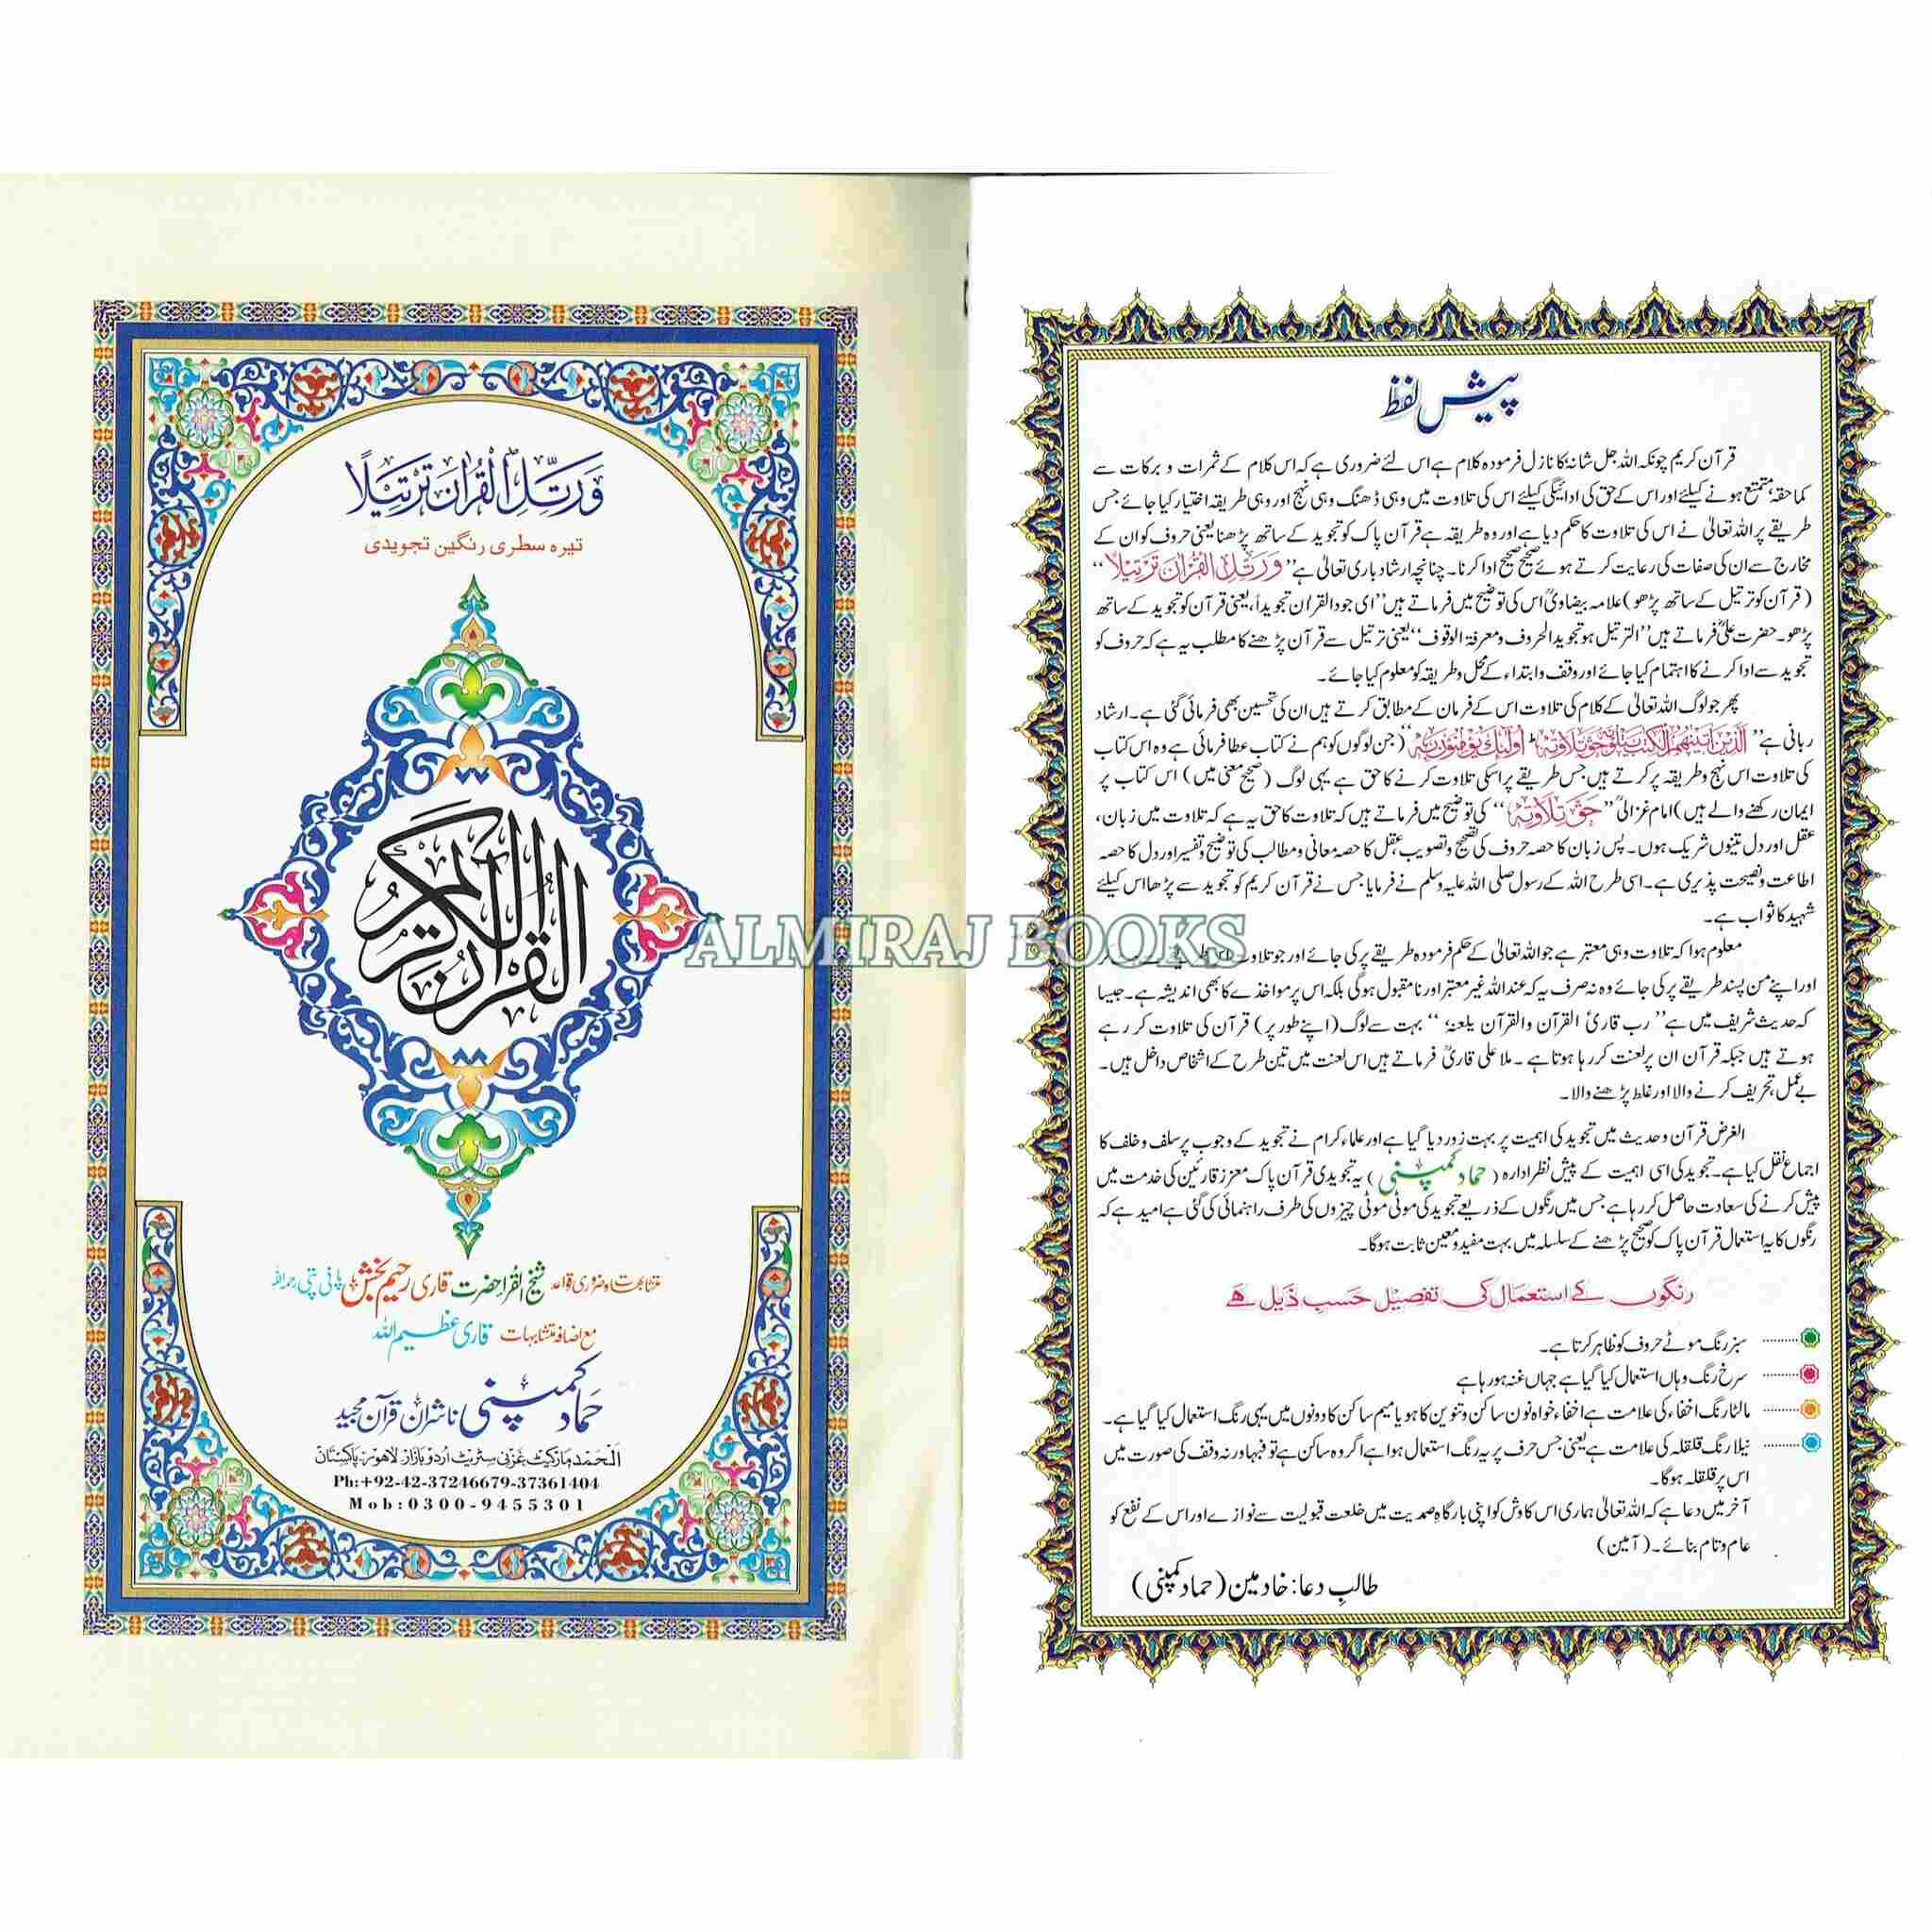 وَرَتِّلِ الْقُرْاٰنَ تَرْتِیْلًا
تیرہ سطری رنگین تجویدی
القرآن الکریم
متشابہات و ضروری قواعد شیخ القراء حضرت قاری رحیم بخش پانی پتی رحمہ اللہ
مع اضافہ متشابہات قاری عظیم اللہ
حماد کمپنی ناشران قرآن مجید
الحمد مارکیٹ غزنی سٹریٹ اردو بازار لاہور۔ پاکستان
Ph:+92-42-37246679-37361404
Mob:0300-9455301
ALMIRAJ BOOKS
پیش لفظ
قرآن کریم چونکہ اللہ جل شانہ کا نازل فرمودہ کلام ہے اس لئے ضروری ہے کہ اس کلام کے ثمرات و برکات سے
کما حقہ، متمتع ہونے کیلئے اور اس کے حق کی ادائیگی کیلئے اس کی تلاوت میں وہی ڈھنگ وہی نہج اور وہی طریقہ اختیار کیا جائے جس
طریقے پر اللہ تعالیٰ نے اس کی تلاوت کا حکم دیا ہے اور وہ طریقہ ہے قرآن پاک کو تجوید کے ساتھ پڑھنا یعنی حروف کو ان کے
مخارج سے ان کی صفات کی رعایت کرتے ہوئے صحیح صحیح ادا کرنا۔ چنانچہ ارشاد باری تعالیٰ ہے ”وَرَتِّلِ الْقُرْاٰنَ تَرْتِیْلًا“
(قرآن کو ترتیل کے ساتھ پڑھو) علامہ بیضاویؒ اس کی توضیح میں فرماتے ہیں ”ای جود القرآن تجویداً، یعنی قرآن کو تجوید کے ساتھ
پڑھو۔ حضرت علیؓ فرماتے ہیں ”الترتیل ہو تجوید الحروف ومعرفۃ الوقوف“ یعنی ترتیل سے قرآن پڑھنے کا مطلب یہ ہے کہ حروف کو
تجوید سے ادا کرنے کا اہتمام کیا جائے اور وقف وابتداء کے محل و طریقہ کو معلوم کیا جائے۔
پھر جو لوگ اللہ تعالیٰ کے کلام کی تلاوت اس کے فرمان کے مطابق کرتے ہیں ان کی تحسین بھی فرمائی گئی ہے۔ ارشاد
ربانی ہے ”اَلَّذِیْنَ اٰتَیْنٰهُمُ الْکِتٰبَ یَتْلُوْنَهٗ حَقَّ تِلَاوَتِهٖ ؕ اُولٰٓئِكَ یُؤْمِنُوْنَ بِهٖ“ (جن لوگوں کو ہم نے کتاب عطا فرمائی ہے وہ اس کتاب
کی تلاوت اس نہج و طریقہ پر کرتے ہیں جس طریقے پر اسکی تلاوت کرنے کا حق ہے یہی لوگ (صحیح معنی میں) اس کتاب پر
ایمان رکھنے والے ہیں) امام غزالیؒ ”حَقَّ تِلَاوَتِهٖ“ کی توضیح میں فرماتے ہیں کہ تلاوت کا حق یہ ہے کہ تلاوت میں زبان،
عقل اور دل تینوں شریک ہوں۔ پس زبان کا حصہ حروف کی تصحیح و تصویب، عقل کا حصہ معانی و مطالب کی توضیح و تفسیر اور دل کا حصہ
اطاعت و نصیحت پذیری ہے۔ اسی طرح اللہ کے رسول صلی اللہ علیہ وسلم نے فرمایا جس نے قرآن کریم کو تجوید سے پڑھا اس کیلئے
شہید کا ثواب ہے۔
معلوم ہوا کہ تلاوت وہی معتبر ہے جو اللہ تعالیٰ کے حکم فرمودہ طریقے پر کی جائے اور جو تلاوت
اور اپنے من پسند طریقے پر کی جائے وہ نہ صرف یہ کہ عند اللہ غیر معتبر اور نا مقبول ہوگی بلکہ اس پر مواخذے کا بھی اندیشہ ہے۔ جیسا
کہ حدیث شریف میں ہے ”رب قارئ القرآن والقرآن یلعنہ“ بہت سے لوگ (اپنے طور پر) قرآن کی تلاوت کر رہے
ہوتے ہیں جبکہ قرآن ان پر لعنت کر رہا ہوتا ہے۔ ملا علی قاریؒ فرماتے ہیں اس لعنت میں تین طرح کے اشخاص داخل ہیں۔
بے عمل، تحریف کرنے والا اور غلط پڑھنے والا۔
الغرض قرآن و حدیث میں تجوید کی اہمیت پر بہت زور دیا گیا ہے اور علماء کرام نے تجوید کے وجوب پر سلف و خلف کا
اجماع نقل کیا ہے۔ تجوید کی اسی اہمیت کے پیش نظر ادارہ (حماد کمپنی) یہ تجویدی قرآن پاک معزز قارئین کی خدمت میں
پیش کرنے کی سعادت حاصل کر رہا ہے جس میں رنگوں کے ذریعے تجوید کی موٹی موٹی چیزوں کی طرف راہنمائی کی گئی ہے امید ہے کہ
رنگوں کا یہ استعمال قرآن پاک کو صحیح پڑھنے کے سلسلہ میں بہت مفید و معین ثابت ہوگا۔
رنگوں کے استعمال کی تفصیل حسبِ ذیل ہے
سبز رنگ موٹے حروف کو ظاہر کرتا ہے۔
سرخ رنگ وہاں استعمال کیا گیا ہے جہاں غنہ ہو رہا ہے
مالٹا رنگ اخفاء کی علامت ہے اخفاء خواہ نون ساکن و تنوین کا ہو یا میم ساکن کا دونوں میں یہی رنگ استعمال کیا گیا ہے۔
نیلا رنگ قلقلہ کی علامت ہے یعنی جس حرف پر یہ رنگ استعمال ہوا ہے اگر وہ ساکن ہے تو فبہا ورنہ وقف کی صورت میں
اس پر قلقلہ ہوگا۔
آخر میں دعا ہے کہ اللہ تعالیٰ ہماری اس کاوش کو اپنی بارگاہِ صمدیت میں خلعت قبولیت سے نوازے اور اس کے نفع کو
عام و تام بنائے۔ (آمین)
طالبِ دعا: خادمین (حماد کمپنی)